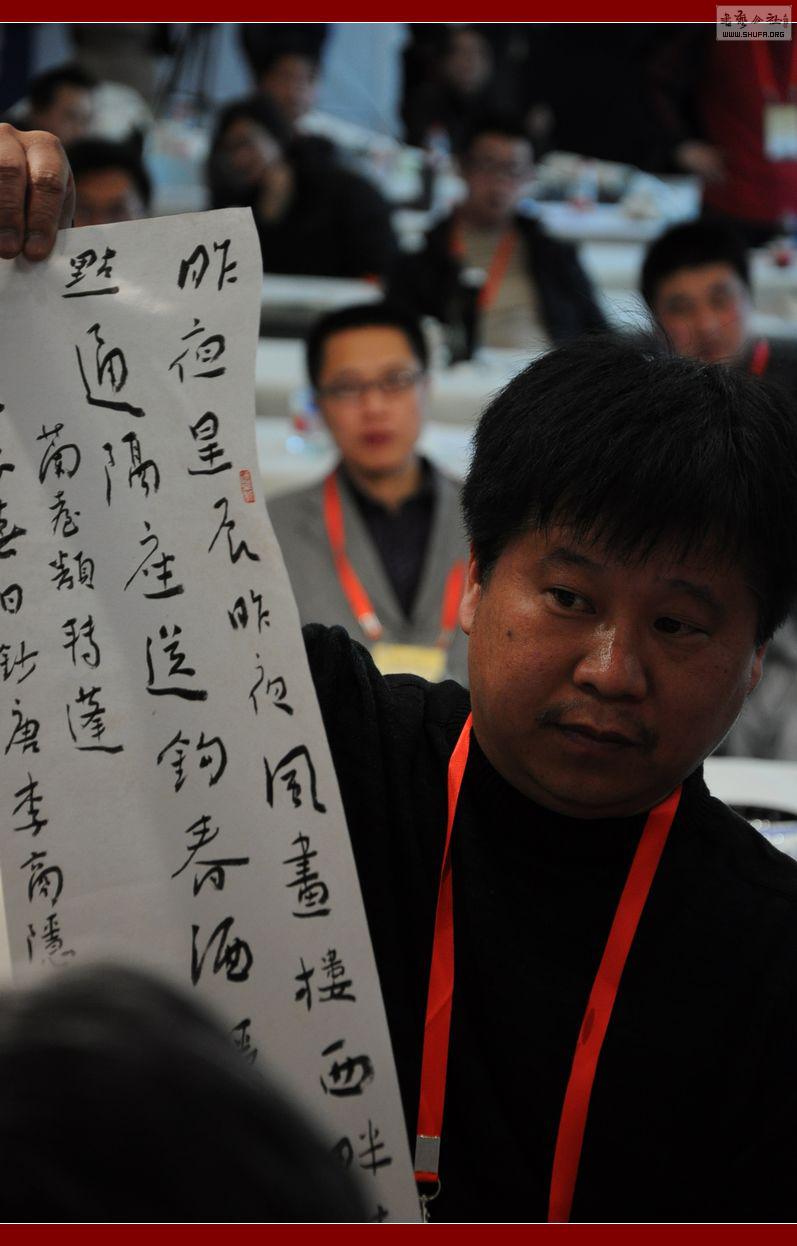 昨夜星辰昨夜風畫樓西畔
點通隔座送鈎春酒
蘭臺類轉蓬
春日鈔唐李商隱
書藝公社
WWW.SHUFA.ORG